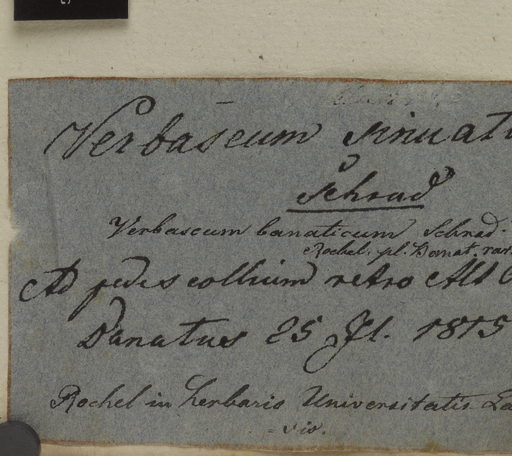 Verbascum sinuat
Schrad
Verbascum banaticum Schrad.
Rochel. pl. Banat. rar
Ad pedes collium retro Alt
Banatus 25 Jl. 1815
Rochel in herbario Universitatis
vis.